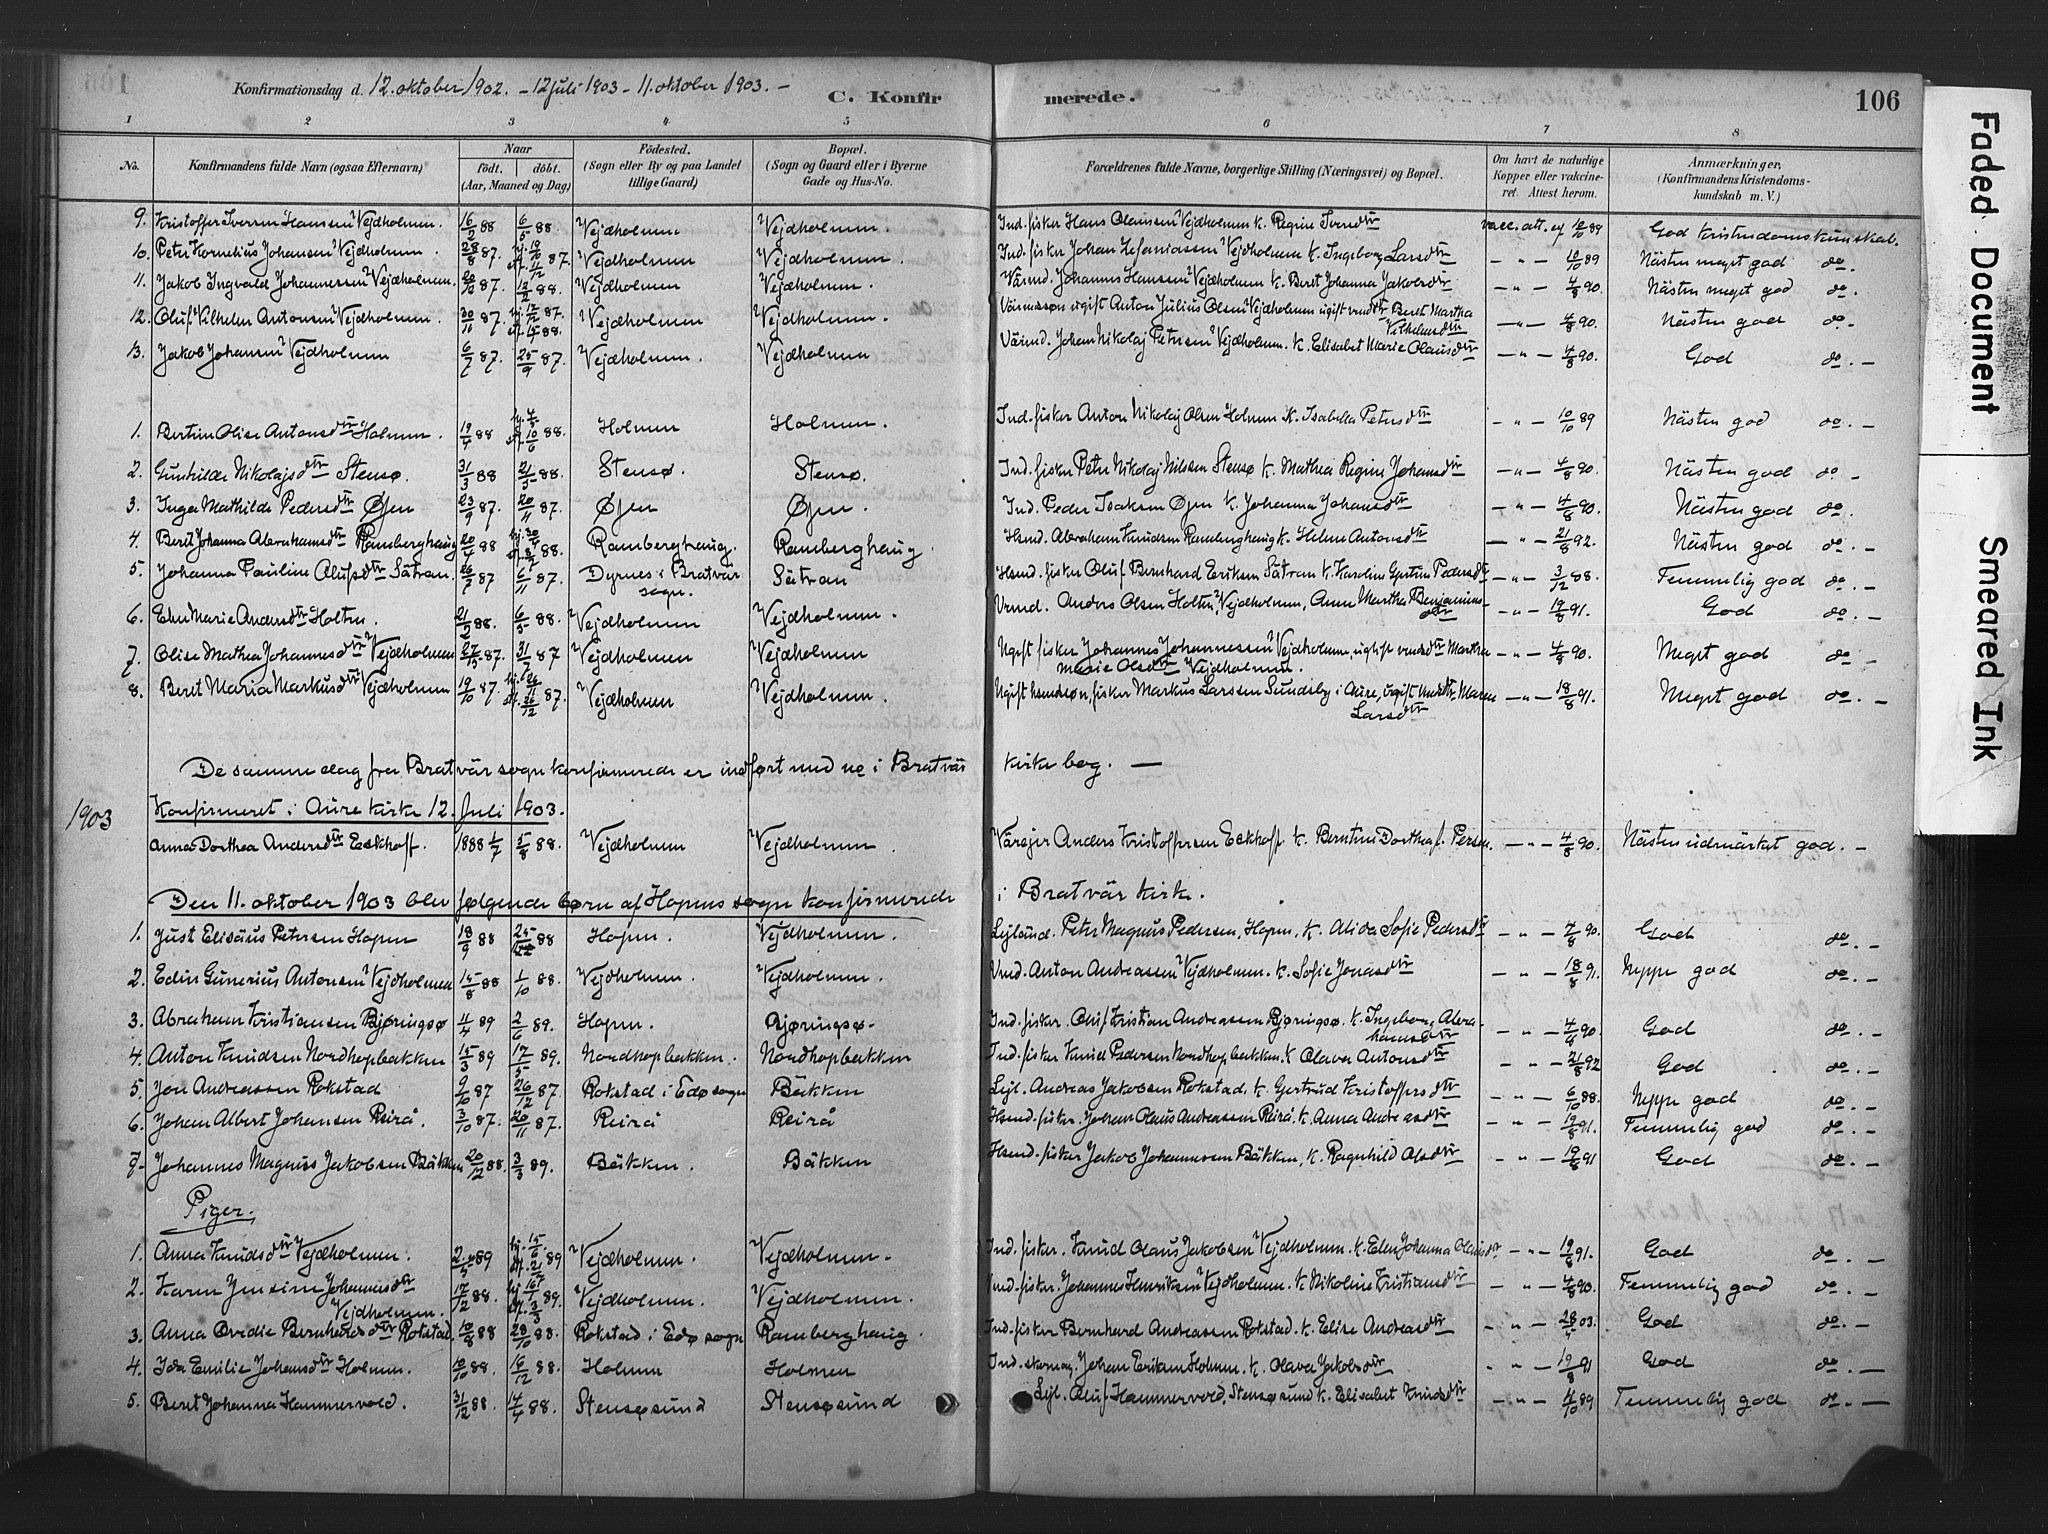 Konfirmationsdag d. 12. oktober 1902. - 12 juli 1903 - 11. oktober 1903. -
C. Konfirmerede.
106
1 2 3 4 5 6 7 8
No. Konfirmandens fulde Navn (ogsaa Efternavn) Naar födt. döbt. (Aar, Maaned og Dag) Födested. (Sogn eller By og paa Landet tillige Gaard) Bopæl. (Sogn og Gaard eller i Byerne Gade og Hus-No. Forældrenes fulde Navne, borgerlige Stilling (Næringsvei) og Bopæl. Om havt de naturlige Kopper eller vakcineret. Attest herom. Anmærkninger, (Konfirmandens Kristendomskundskab m. V.)
9. Kristoffer Iversen Hansen Vejdholmen. 16/2 88 6/5 88. Vejdholmen Vejdholmen. Ind. fisker Hans Olaussen Vejdholmen k. Regine Iversdtr vacc. att. af 10/10 89 God kristendomskunskab.
10. Peter Kornelius Johansen Vejdholmen. 28/8 87. hj. 18/10 st. 11/12 87. Vejdholmen Vejdholmen. Ind. fisker Johan Zefaniassen Vejdholmen k. Ingeborg Larsdtr - " - 10/10 89 Nästen meget god do. -
11. Jakob Ingvald Johannessen Vejdholmen. 20/10 87. 12/2 88. Vejdholmen Vejdholmen. Värmd. Johannes Hanssen Vejdholmen k. Beret Johanna Jakobsdtr - " - 4/8 90. Nästen meget god do. -
12. Oluf Vilhelm Antonsen Vejdholmen. 30/11 87 hj. 17/12 87. st. 15/1 88. Vejdholmen Vejdholmen. Värmssøn ugift Anton Julius Olsen Vejdholmen ugift vmdtr Beret Martha Vilhelmsdtr - " - 4/8 90. Nästen god do. -
13. Jakob Johansen Vejdholmen 6/7 87. 25/9 87. Vejdholmen. Vejdholmen Värmd. Johan Nikolaj Petersen Vejdholmen. k. Elisabet Marie Olausdtr - " - 4/8 90. God do. -
1. Bertine Olise Antonsdtr Holmen. 19/4 88 st. 10/6 88. Holmen Holmen. Ind. fisker Anton Nikolaj Olsen Holmen k. Isabella Petersdtr - " - 10/10 89 Nästen god do. -
2. Gunhilde Nikolajsdtr Stensø. 31/3 88 21/5 88. Stensø. Stensø. Ind. fisker Peter Nikolaj Nilssen Stensø k. Mathea Regine Johansdtr - " - 4/8 90. Nästen god do -
3. Inga Mathilde Pedersdtr Øjen 23/9 87. 20/11 87. Øjen Øjen. Ind. Peder Isaksen Øjen k. Johanna Johansdtr - " - 4/8 90. Nästen god do.
4. Beret Johanna Abrahamsdtr Ramberghaug 20/4 88 88. Ramberghaug. Ramberghaug. Hsmd. Abraham Knudsen Ramberghaug k. Helene Antonsdtr - " - 21/8 92. Nästen god do. -
5. Johanna Pauline Olufsdtr Sätran. 26/7 87 6/11 87. Dyrnes i Bratvär sogn. Sätran Hsmd. fisker Oluf Bernhard Eriksen Sätran k. Karoline Gjertine Pedersdtr - " - 3/12 88. Temmelig god do. -
6. Elen Marie Andersdtr Holten. 21/2 88. 6/5 88. Vejdholmen Vejdholmen. Vmd. Anders Olsen Holten, Vejdholmen, Anne Martha Benjaminsdtr - " - 19/8 91. God do. -
7. Olise Mathea Johannesdtr Vejdholmen 27/5 87. 31/7 87 Vejdholmen Vejdholmen Ugift fisker Johannes Johannessen Vejdholmen, ugift vmdsdtr Martha Marie Olsdtr Vejdholmen. - " - 4/8 90. Meget god do -
8. Beret Maria Markusdtr Vejdholmen 19/10 87. st. 26/12 87. Vejdholmen Vejdholmen. Ugift hsmdsøn, fisker Markus Larssen Sundsby i Aure, ugift vmdsdtr Maren Larsdtr - " - 18/8 91. Meget god do. -
De samme dag fra Bratvär sogn konfirmerede er indført med no i Bratvär kirkebog. -
1903 Konfirmeret i Aure kirke 12. Juli 1903.
Anna Dorthea Andersdtr Eckhoff. 1888 1/7 5/8 88. Vejdholmen Vejdholmen. Värejer Anders Kristoffersen Eckhoff k. Berntine Dorthea f. Persen. - " - 4/8 90. Nästen udmärket god. -
Den 11. oktober 1903 blev følgende børn af Hopens sogn konfirmerede i Bratvär kirke.
1. Just Elisäus Petersen Hopen 18/9 88 88 Hopen. Vejdholmen. Lejländ. Peter Magnus Pedersen, Hopen, k. Alida Sofie Pedersdtr - " - 4/8 90. God do. -
2. Edin Gunerius Antonsen Vejdholmen 15/8 88 1/10 88. Vejdholmen. Vejdholmen. Vmd. Anton Andreassen Vejdholmen. k. Sofie Jonasdtr - " - 18/8 91. Neppe god do. -
3. Abraham Kristiansen Bjøringsø 11/4 89 2/6 89. Hopen. Bjøringsø. Ind. fisker. Oluf Kristian Andreassen Bjøringsø. k. Ingeborg Abrahamsdtr - " - 4/8 90. God do. -
4. Anton Knudsen Nordhopbakken 15/3 89 17/5 89. Nordhopbakken. Nordhopbakken Ind. fisker Knud Pedersen Nordhopbakken. k Olava Antonsdtr - " - 21/8 92 God do. -
5. Jon Andreassen Rokstad 9/10 87 26/12 87. Rokstad i Edø sogn Bäkken Lejl. Andreas Jakobsen Rokstad. k. Gjertrud Kristoffersdtr - " - 6/10 88. Neppe god do. -
6. Johan Albert Johansen Reirå. 3/10 87. 20/11 87. Reirå Reirå Hsmd. fisker. Johan Olaus Andreassen Reirå. k. Anna Andreasdtr - " - 19/8 91. Temmelig god do. -
7- Johannes Magnus Jakobsen Bäkken 20/12 88. 3/3 89. Bäkken. Bäkken Hsmd. fisker Jakob Johannessen Bäkken, k. Ragnhild Olsdtr - " - 19/8 91 God do. -
Piger.
1. Anna Knudsdtr Vejdholmen. 2/5 89 hj. 15/6 st. 21/7 89 Vejdholmen. Vejdholmen. Ind. fisker. Knud Olaus Jakobsen Vejdholmen. k. Elen Johanna Olausdtr - " - 19/8 91. God do -
2. Karen Jensine Johannesdtr Vejdholmen. 17/12 88. hj. 16/1 st. 3/3 89. Vejdholmen. Vejdholmen. Vmd. fisker. Johannes Henriksen Vejdholmen. k. Nikoline Kristiansdtr - " - 4/8 90. Temmelig god do. -
3. Anna Ovedie Bernhardsdtr Rokstad. 10/8 88 28/10 88. Rokstad i Edø sogn Ramberghaug. Ind. fisker Bernhard Andreassen Rokstad. k. Elise Andreasdtr - " - 28/5 03. God do. -
4. Ida Emilie Johansdtr Holmen. 10/10 88. 16/12 88. Holmen Holmen Ind. skomag. Johan Eriksen Holmen. k. Olava Jakobsdtr - " - 19/8 91 God do. -
5. Beret Johanna Hammervold. 31/12 88. 14/4 88. Stensøsund Stensøsund Lejl. Oluf Hammervold, Stensøsund k. Elisabet Knudsdtr - " - 4/10 89 Temmelig god do. -
Faded Document
Smeared Ink